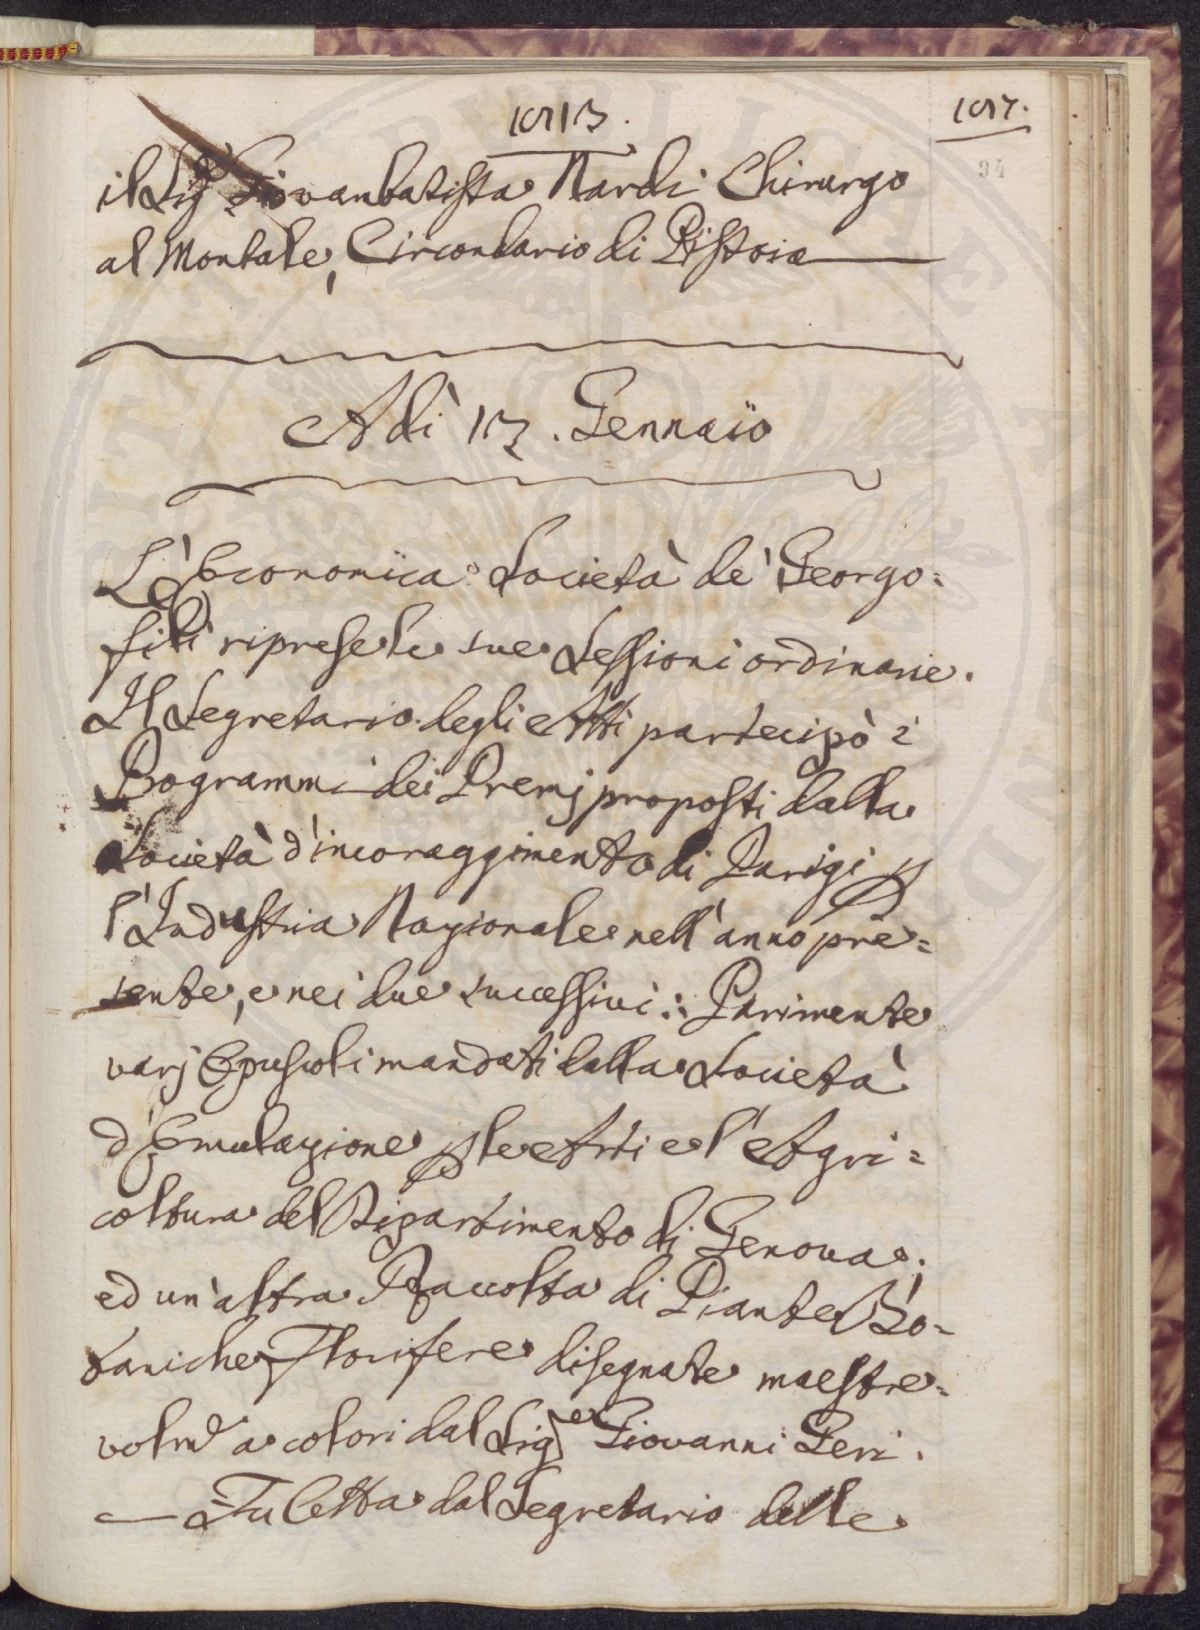 1813.
187.
94
il Sig.r Giovanbatista Nardi Chirurgo
al Montale, Circondario di Pistoia
Adì 13. Gennaio
L'Economica Società de' Georgo=
fili riprese le sue Sessioni ordinarie.
Il Segretario degli Atti partecipò i
Programmi dei Premj proposti dalla
Società d'incoraggimento di Parigi p
l'Industria Nazionale nell'anno pre=
sente, e nei due successivi: Parimente
varj Opuscoli mandati dalla Società
d'Emulazione p le Arti e l'Agri=
coltura del Dipartimento di Genova.
ed un'altra Raccolta di Piante Bo=
taniche Florifere disegnate maestre=
volm.e a colori dal Sig.e Giovanni Geri.
— Fu letta dal Segretario delle